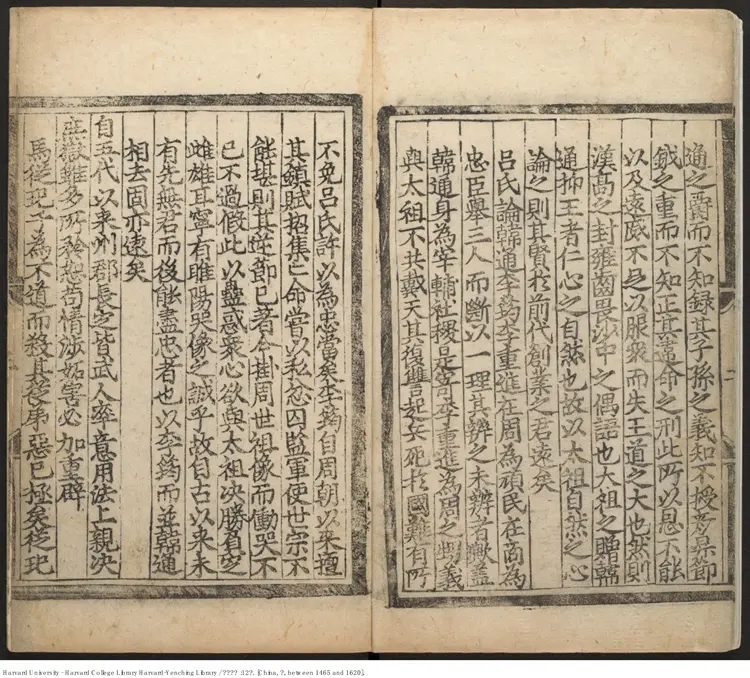 通之爵而不知録其子孫之義知不授彦昇節
鉞之重而不知正其棄命之刑此所以恩不能
以及遠威不足以服衆而失王道之大也然則
漢高之封雍齒畏沙中之偶語也太祖之贈韓
通抑王者仁心之自然也故以太祖自然之心
論之則其賢於前代創業之君遠矣
吕氏論韓通李筠李重進在周為頑民在商為
忠臣舉三人而斷以一理其辨之未辨者歟盖
韓通身為宰輔社稷是寄李重進為周之懿義
與太祖不共戴天其復讐起兵死於國難有所
不免吕氏許以為忠當矣李筠自周朝以来擅
其鎮賦招集亡命嘗以私忿囚監軍使世宗不
能堪則其逆節已著今掛周世祖像而慟哭不
已不過假此以蠱惑衆心欲與太祖决勝負定
雌雄耳寧有睢陽哭像之誠乎故自古以来未
有先無君而後能盡忠者也以李筠而並韓通
相去固亦遠矣
自五代以来州郡長吏皆武人率意用法上親决
庶獄雖多所矜恕苟情涉妬害必加重辟
馬從玘子為不道而殺其從弟惡已極矣從玘
Harvard University - Harvard College Library Harvard-Yenching Library / ???? :12?. [China, ?, between 1465 and 1620].